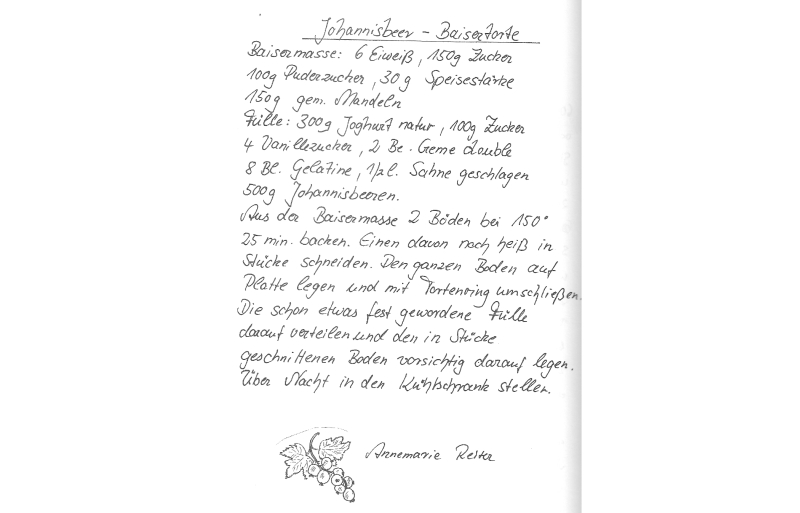 Johannisbeer - Baisertorte
Baisermasse: 6 Eiweiß, 150g Zucker
100g Puderzucker, 30g Speisestärke
150g gem. Mandeln
Fülle: 300g Joghurt natur, 100g Zucker
4 Vanillezucker, 2 Be. Creme double
8 Bl. Gelatine, 1/2 l. Sahne geschlagen
500g Johannisbeeren.
Aus der Baisermasse 2 Böden bei 150°
25 min. backen. Einen davon noch heiß in
Stücke schneiden. Den ganzen Boden auf
Platte legen und mit Tortenring umschließen.
Die schon etwas fest gewordene Fülle
darauf verteilen und den in Stücke
geschnittenen Boden vorsichtig darauf legen.
Über Nacht in den Kühlschrank stellen.
Annemarie Reiter